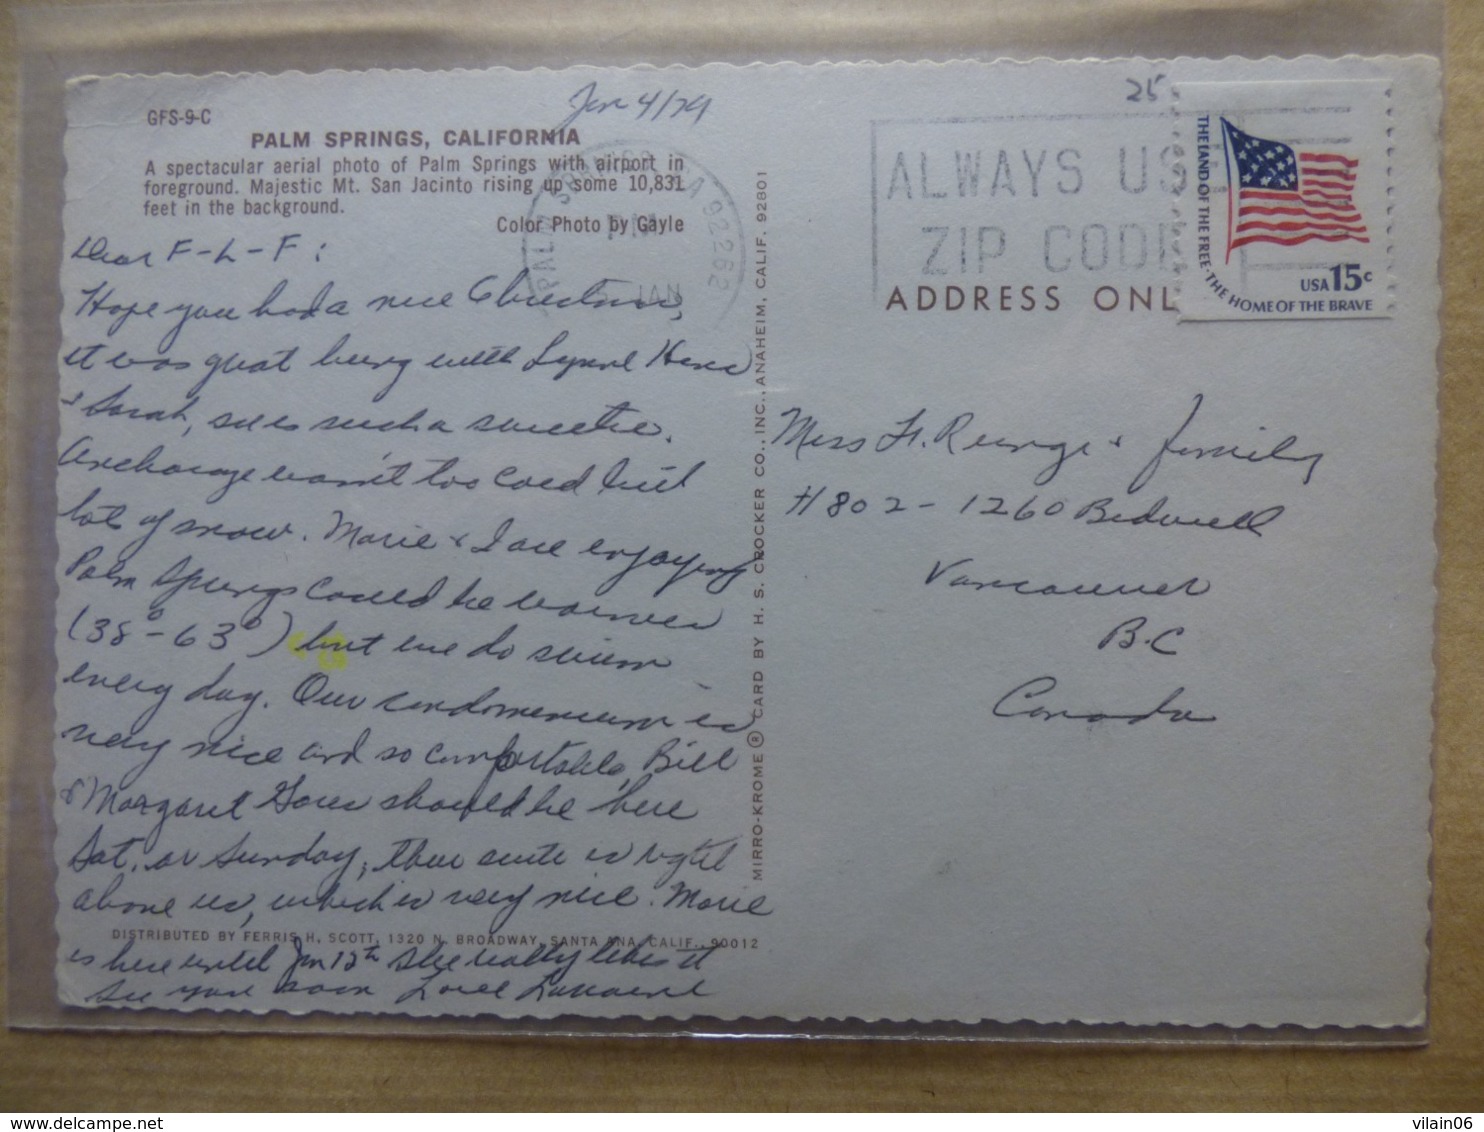 Jan 4/79
25
GFS-9-C
PALM SPRINGS, CALIFORNIA
A spectacular aerial photo of Palm Springs with airport in
foreground. Majestic Mt. San Jacinto rising up some 10,831
feet in the background.
Color Photo by Gayle
Dear F-L-F:
Hope you had a nice Christmas,
it was great being with Lynne
& Sarah, she is such a sweetie.
Anchorage wasn't too cold but
lot of snow. Marie & I are enjoying
Palm Springs could be warmer
(38°-63°) but we do swim
every day. Our condominium is
very nice and so comfortable, Bill
& Margaret should be here
Sat. or Sunday, their suite is right
above us, which is very nice. Marie
is here until Jan 12th she really likes it
See you soon Love Lorraine
DISTRIBUTED BY FERRIS H. SCOTT, 1320 N. BROADWAY, SANTA ANA, CALIF., 90012
MIRRO-KROME ® CARD BY H. S. CROCKER CO., INC., ANAHEIM, CALIF. 92801
PALM SPRINGS CA 92262
PM
JAN
ALWAYS USE
ZIP CODE
ADDRESS ONL
THE LAND OF THE FREE·THE HOME OF THE BRAVE
USA 15c
Miss H. Runge & family
#802-1260 Bidwell
Vancouver
B.C
Canada
delcampe.net
vilain06